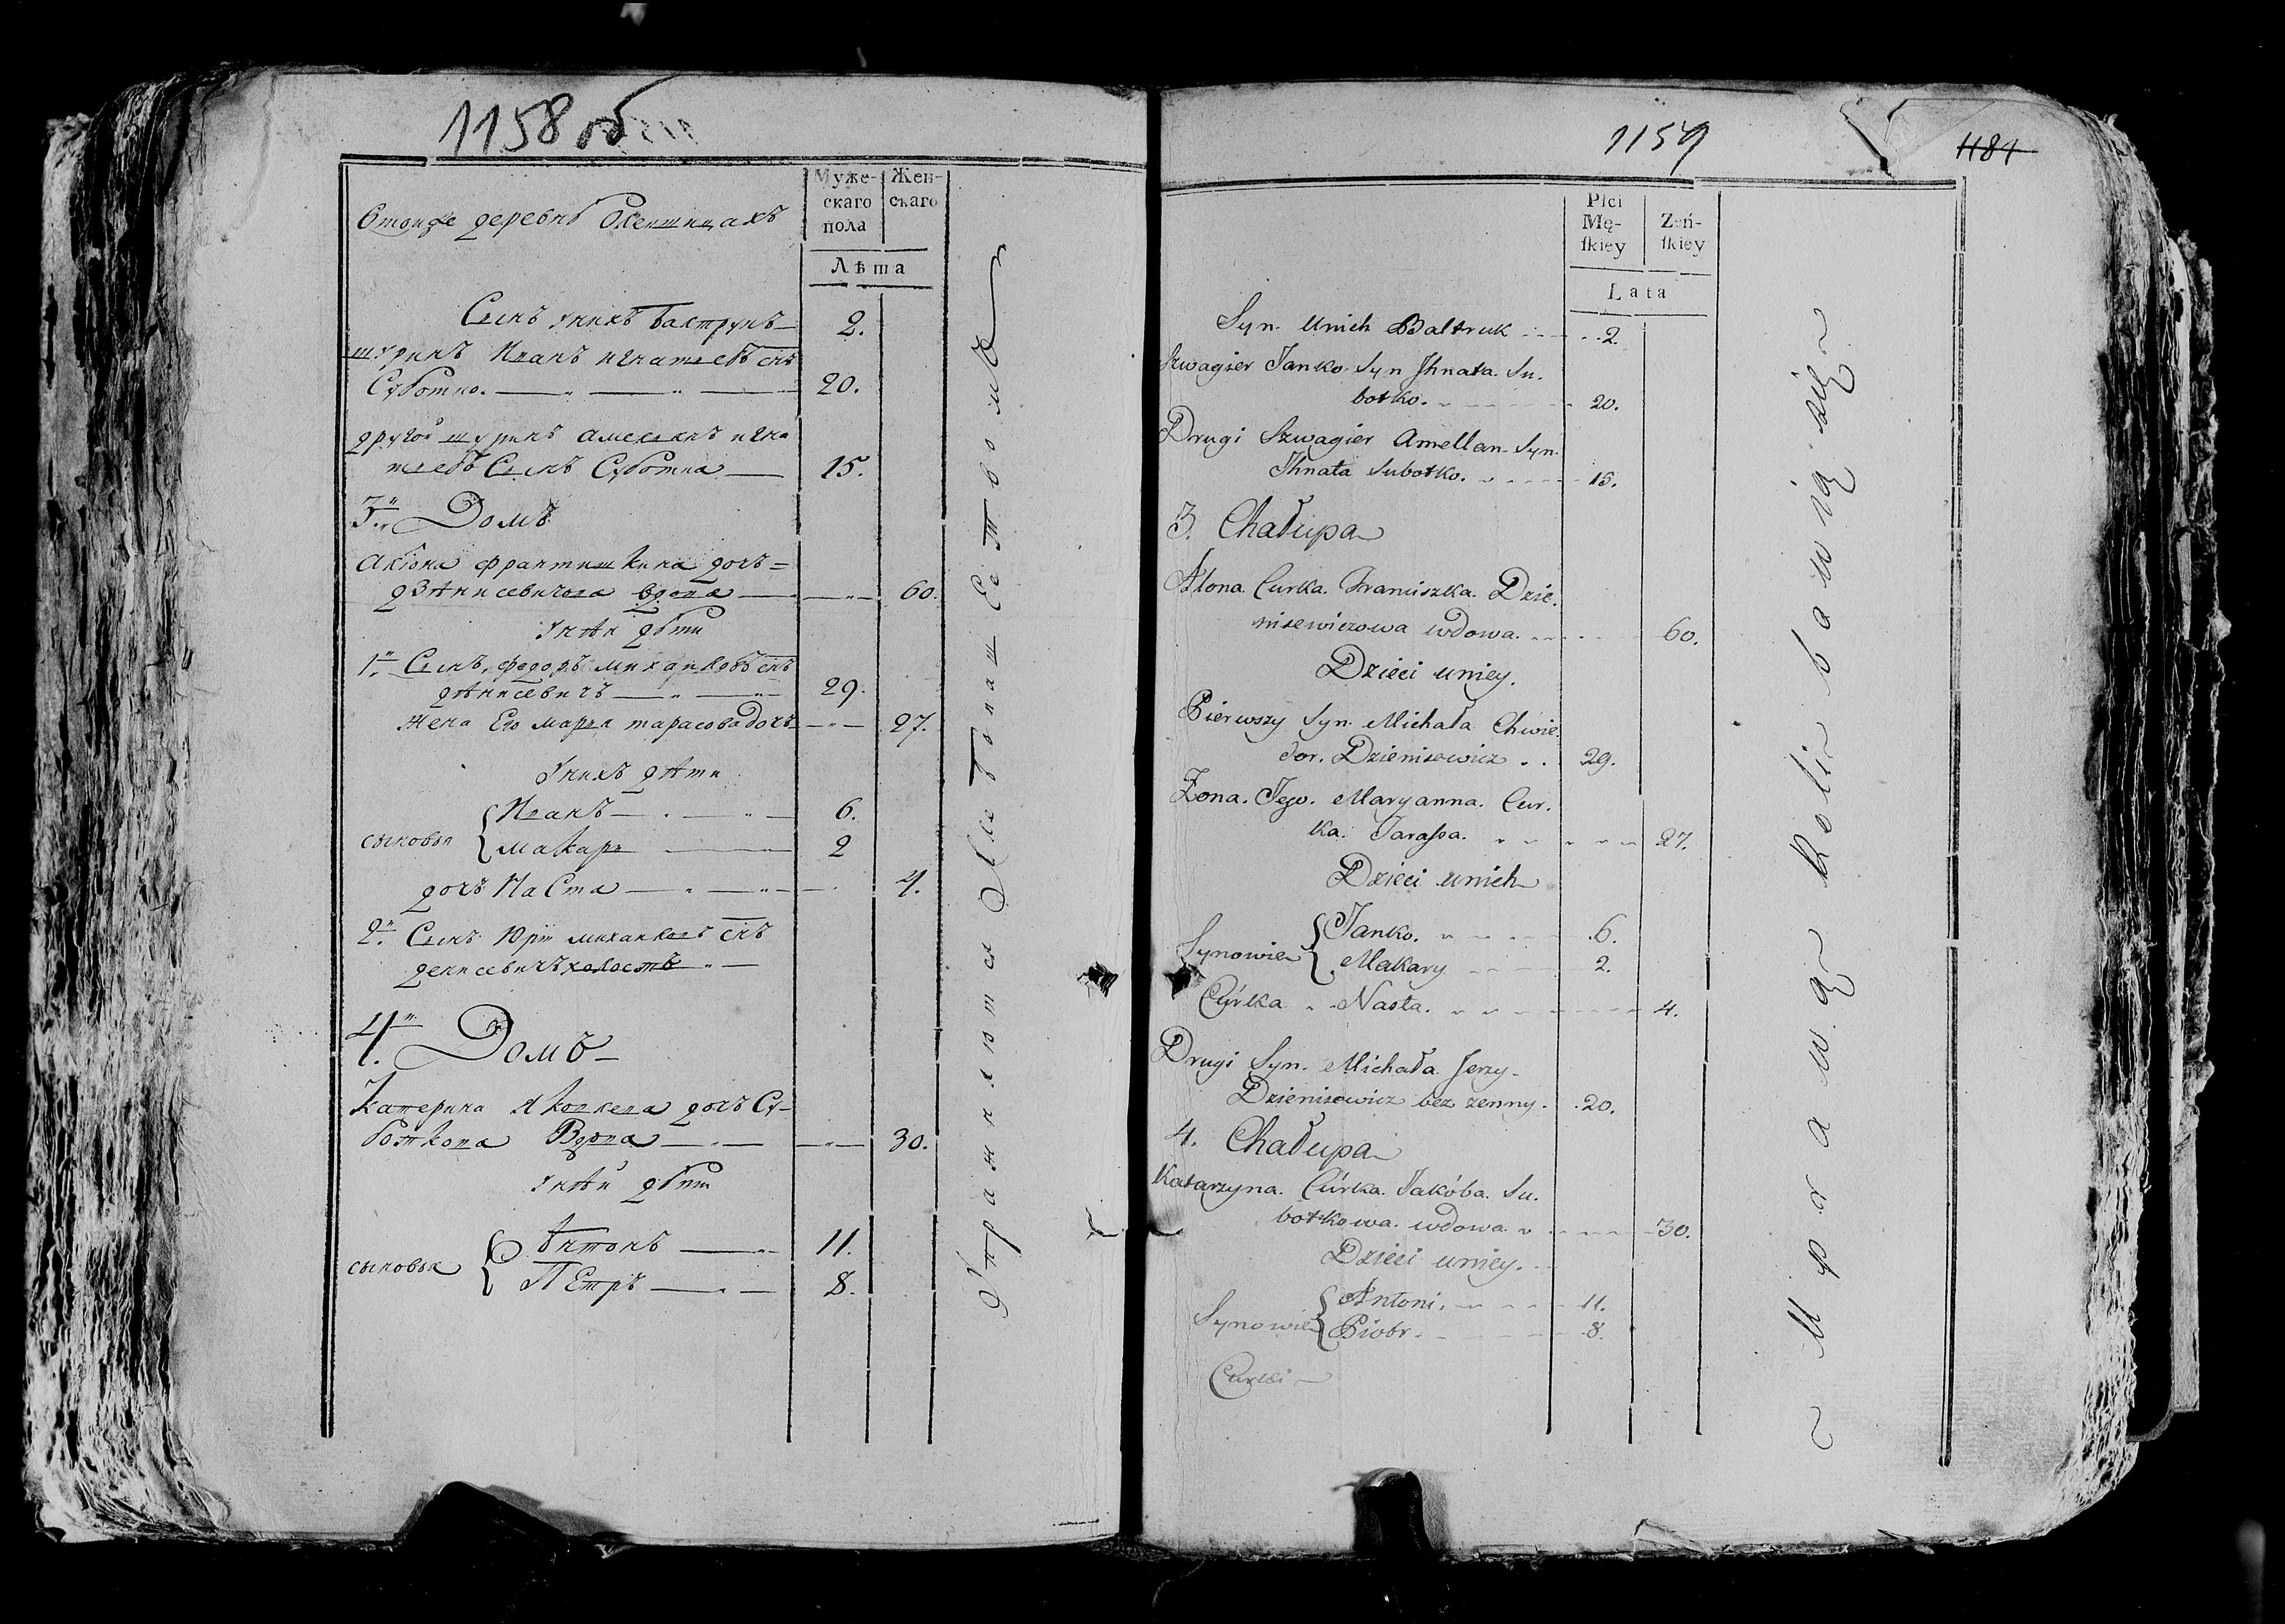 1158 об
Муже-
скаго
пола
Жен-
скаго
Лѣта
деревнѣ
Сынъ унихъ Балтрукъ 2.
шуринъ Иванъ игнатьевъ снъ
Суботко. 20.
другой шуринъ амельянъ игна
тьевъ Сынъ Суботка 15.
3. Домъ
францишкина дочь
вдова 60.
унѣи дѣти
1. Сынъ федоръ михайловъ снъ
дѣнисевичъ 29.
жена Его марья тарасова дочь 27.
унихъ дѣти
сыновья
Иванъ 6.
Макаръ 2
дочь Наста 4.
2. Сынъ Юри михайловъ снъ
денисевичъ холостъ
4. Домъ
Катерина Яковлева дочь Су-
боткова Вдова 30.
унѣй дѣти
сыновья
Антонъ 11.
Петръ 8.
Упражняются Хлебопашествомъ
1159
1184
Płci
Mę-
ſkiey
Żeń-
ſkiey
Lata
Syn unich Baltruk 2.
Szwagier Janko Syn Jhnata Su.
botko. 20.
Drugi Szwagier Amellan Syn
Jhnata Subotko. 15.
3. Chałupa
Ałona Curka Franciszka Dzie.
nisewiczowa wdowa. 60.
Dzieci uniey.
Pierwszy Syn Michała Chwie.
dor. Dzienisewicz 29.
Zona. Jego. Maryanna. Cur.
ka. Taraſsa. 27.
Dzieci unich
Synowie
Janko. 6.
Makary 2.
Curka Nasta. 4.
Drugi Syn. Michała Jerzy
Dzienisewicz bez zenny. 20.
4. Chałupa
Katarzyna. Cúrka. Jakóba. Su.
botkowa. wdowa 30.
Dzieci uniey.
Synowie
Antoni. 11.
Piotr. 8.
Curki
Uprawą Roli bawią się